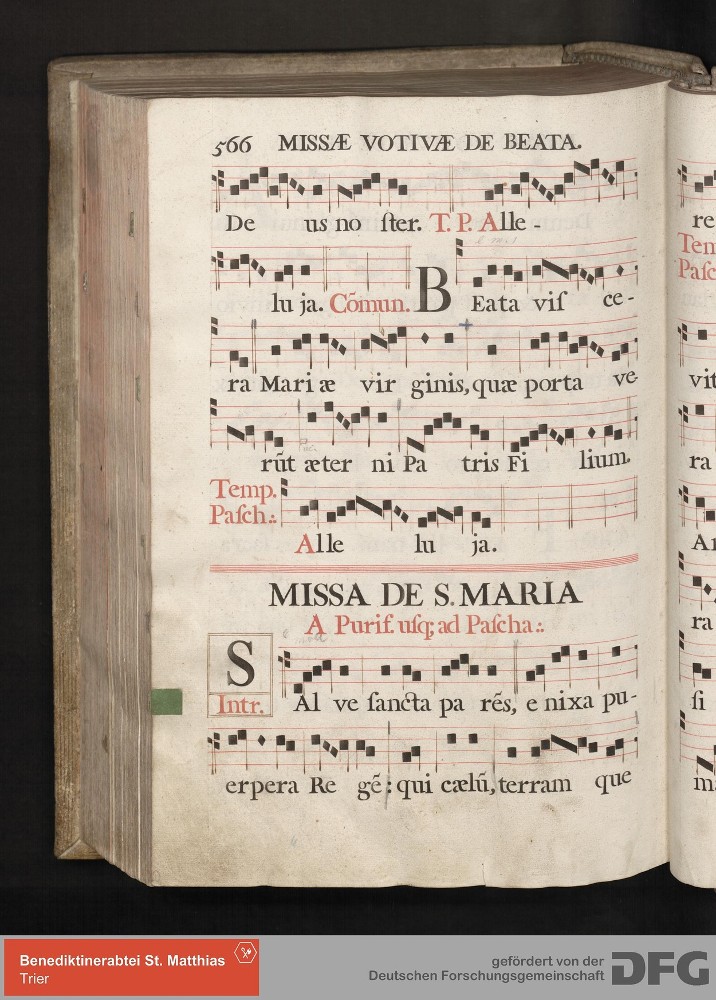 566 MISSÆ VOTIVÆ DE BEATA.
De us no ſter. T. P. Alle -
lu ja. Cõmun. BEata viſ ce -
ra Mari æ vir ginis, quæ porta ve
rũt æter ni Pa tris Fi lium.
Temp. Paſch.:
Alle lu ja.
MISSA DE S. MARIA
A Purif. uſq; ad Paſcha.:
Intr. SAl ve ſancta pa rẽs, e nixa pu -
erpera Re gẽ: qui cælũ, terram que
re
Tem
Paſc
vit
ra
A
ra
ſi
m
Benediktinerabtei St. Matthias
Trier
gefördert von der
Deutschen Forschungsgemeinschaft DFG